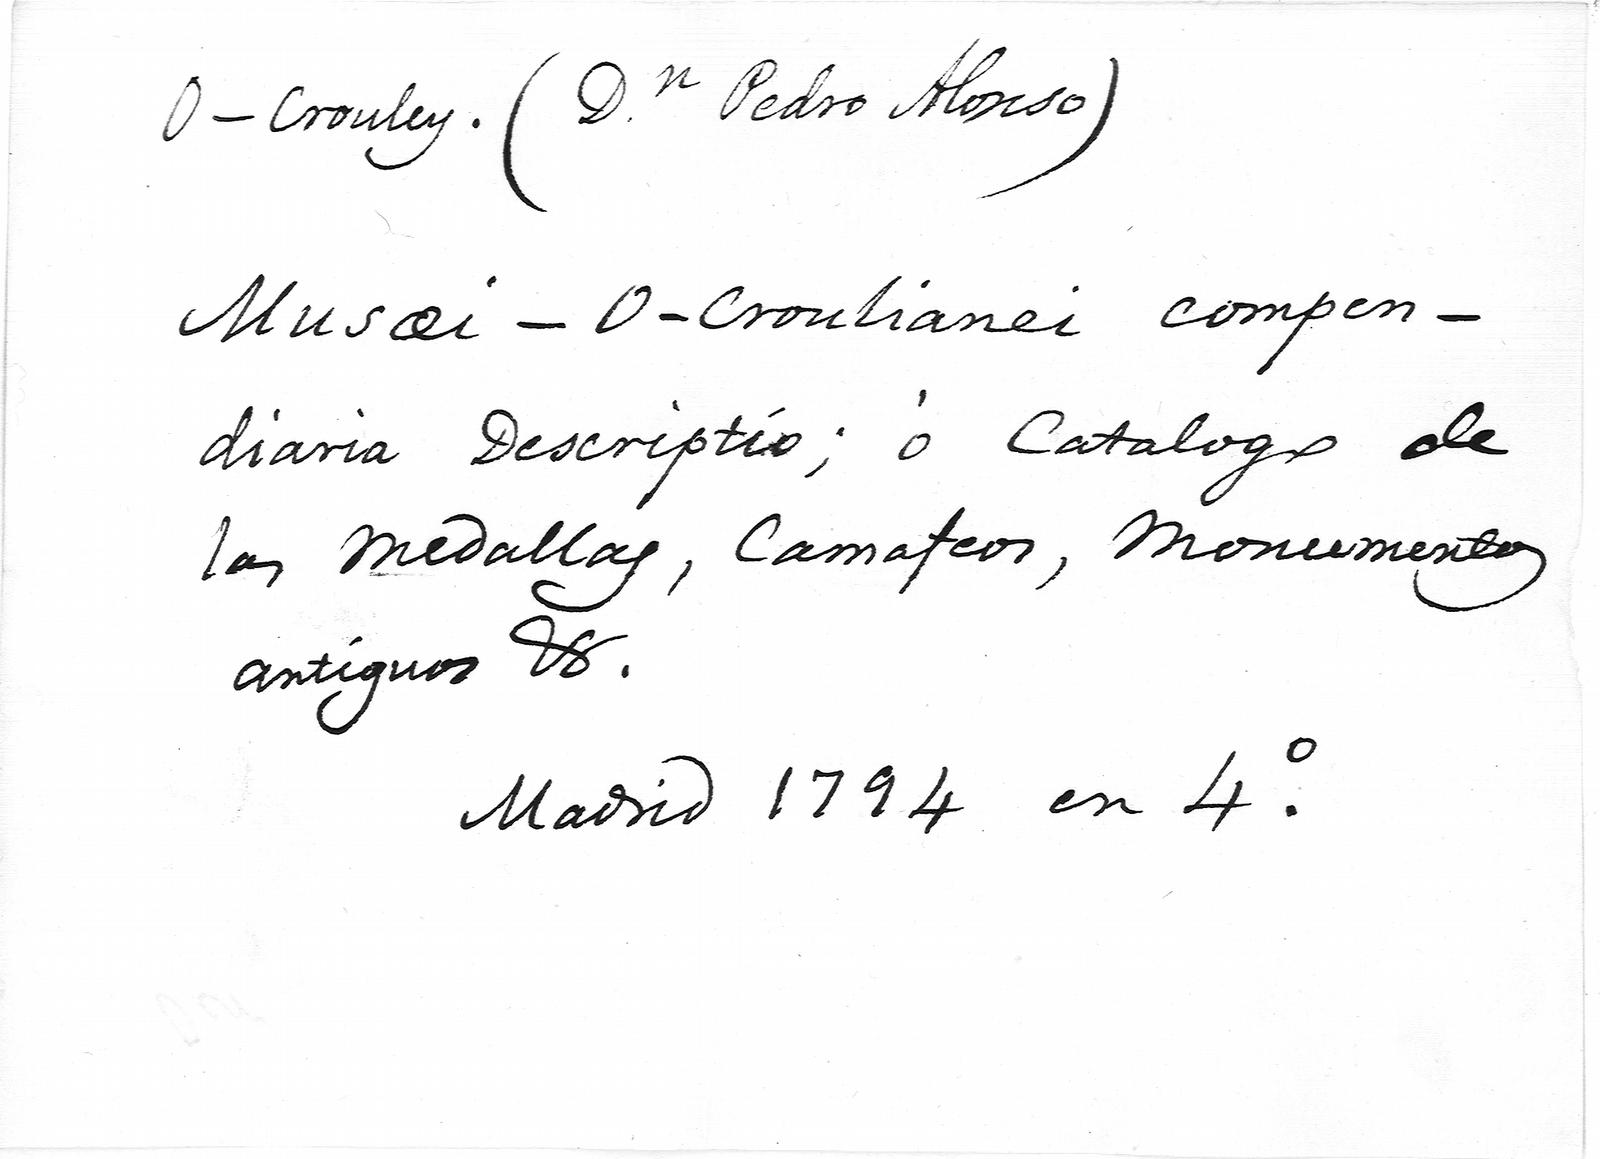 O-Crouley. (D.ⁿ Pedro Alonso)
Musæi - O-Croulianei compen-
diaria Descriptio; ó Catalogo de
las Medallas, Camafeos, Monumentos
antiguos &.
Madrid 1794 en 4.º